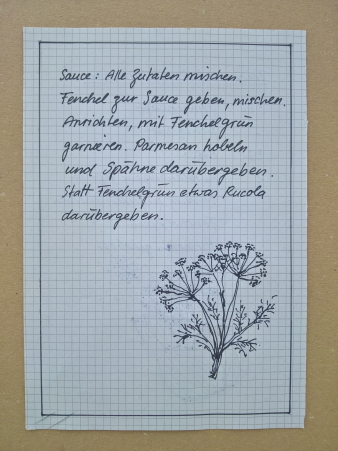 Sauce: Alle Zutaten mischen.
Fenchel zur Sauce geben, mischen.
Anrichten, mit Fenchelgrün
garnieren. Parmesan hobeln
und Spähne darübergeben.
Statt Fenchelgrün etwas Rucola
darübergeben.